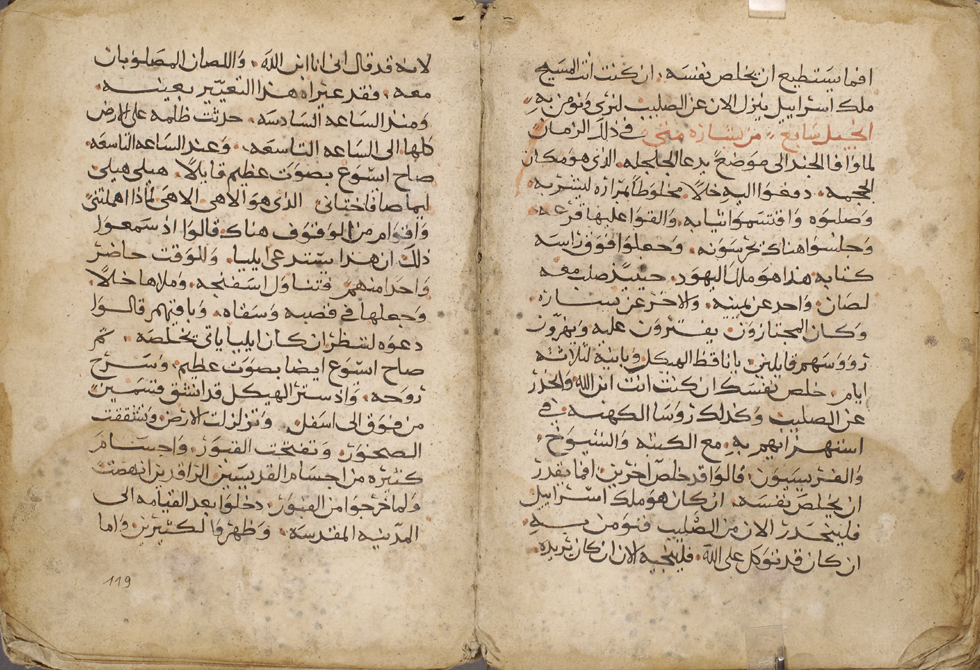 افما يستطيع ان يخلص نفسه. ان كنت انت المسيح
ملك اسراييل ينزل الان عن الصليب لنرى ونومن به
انجيل سابع من بشارة متى في ذلك الزمان
لما وافا الجند الى موضع يدعا الجلجله. الذي هو مكان
الجمجمه. دفعوا اليه خلاً مخلوطاً بمرارة ليشربه
وصلبوه واقتسموا ثيابه. والقوا عليها قرعه.
وجلسوا هناك يحرسونه. وجعلوا فوق راسه
كتابه هذا هو ملك اليهود. حينيذ صلب معه
لصان. واحد عن يمينه. والاخر عن يساره.
وكان المجتازون يفترون عليه ويهزون
رووسهم قايلين. يا ناقض الهيكل وبانيه لثلاثة
ايام. خلص نفسك ان كنت انت ابن الله وانحدر
عن الصليب وكذلك روسا الكهنه في
استهزايهم به. مع الكتبه والشيوخ
والفريسيون. قالوا قد خلص آخرين. افما يقدر
ان يخلص نفسه. ان كان هو ملك اسراييل
فلينحدر الان من الصليب فنومن به.
ان كان قد توكل على الله. فلينجيه الان ان كان يريده.
لانه قد قال اني انا ابن الله. واللصان المصلوبان
معه. فقد عيراه هذا التعيير بعينه.
ومنذ الساعه السادسه. حدثت ظلمه على الارض
كلها الى الساعه التاسعه. وعند الساعه التاسعه
صاح ايسوع بصوت عظيم قايلاً. هيلي هيلي
ليما صافاختاني. الذي هو الاهي الاهي لماذا اهملتني
واقوام من الوقوف هناك. قالوا اذ سمعوا
ذلك ان هذا يستدعي ايليا. وللوقت حاضر
واحد منهم. فتناول اسفنجه. وملاها خلاً.
وجعلها في قصبه وسقاه. وباقيهم قالوا
دعوه لننظر ان كان ايليا ياتي يخلصه. ثم
صاح ايسوع ايضا بصوت عظيم. وسرح
روحه. واذ ستر الهيكل قد انشق قسمين
من فوق الى اسفل. وتزلزلت الارض. وتشققت
الصخور. وتفتحت القبور. واجسام
كثيره من اجسام القديسين الراقدين انهضت
ولما خرجوا من القبور. دخلوا بعد القيامه الى
المدينه المقدسه. وظهروا لكثيرين. واما
119